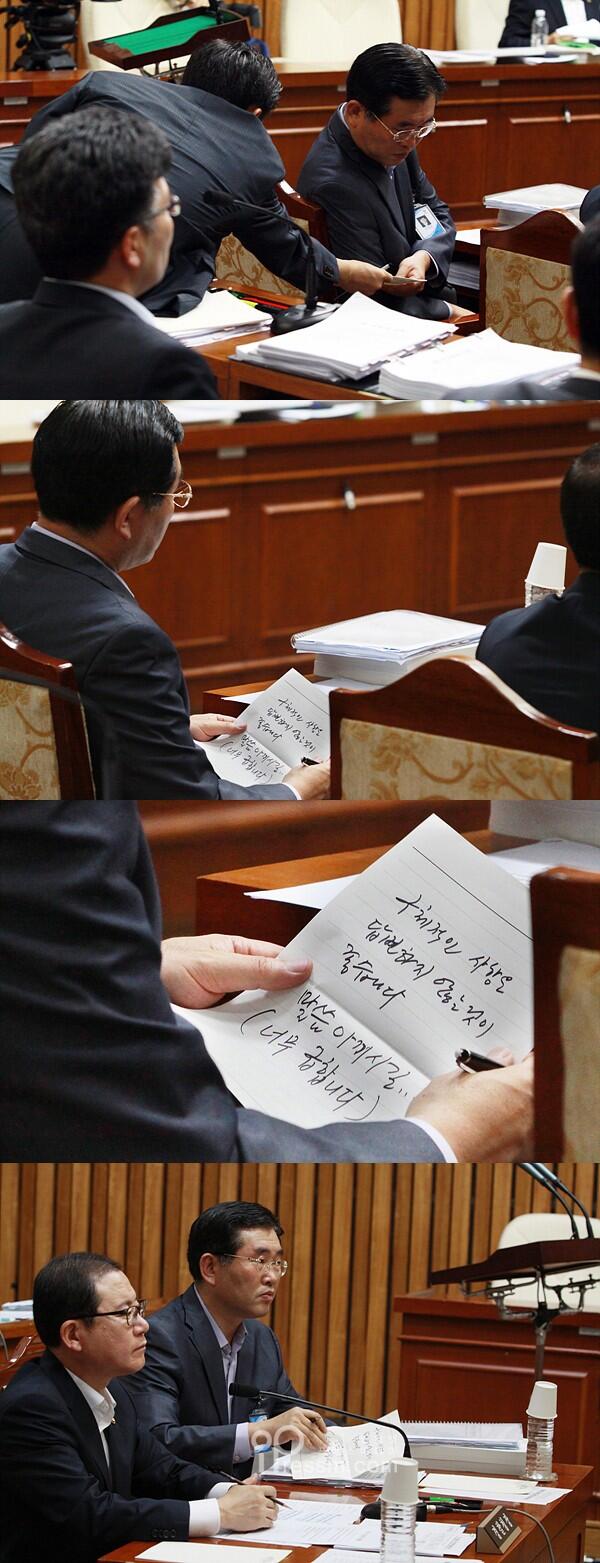 구체적인 사항은
답변하지 않는것이
좋습니다
말씀 아끼시길..
(너무 급합니다)
pressin.com